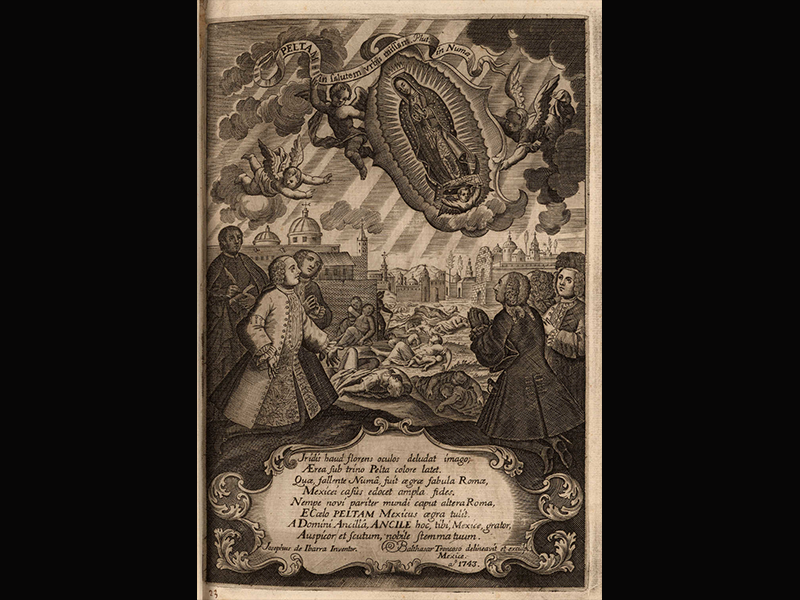 PELTAM
in salutem Urbis missam Plut. in Numa.
Iridis haud florens oculos deludat imago;
Ærea sub trino Pelta colore latet.
Quæ, fallente Numâ, fuit ægræ fabula Romæ,
Mexicei casûs edocet ampla fides.
Nempe novi pariter mundi caput altera Roma,
E Cœlo PELTAM Mexicus ægra tulit.
A Domini Ancillâ, ANCILE hoc, tibi, Mexice, grator,
Auspicor, et scutum, nobile stemma tuum.
Josephus de Ibarra Inventor.
Balthasar Troncoso delineavit et exculp.
Mexice.
aº. 1743.
23